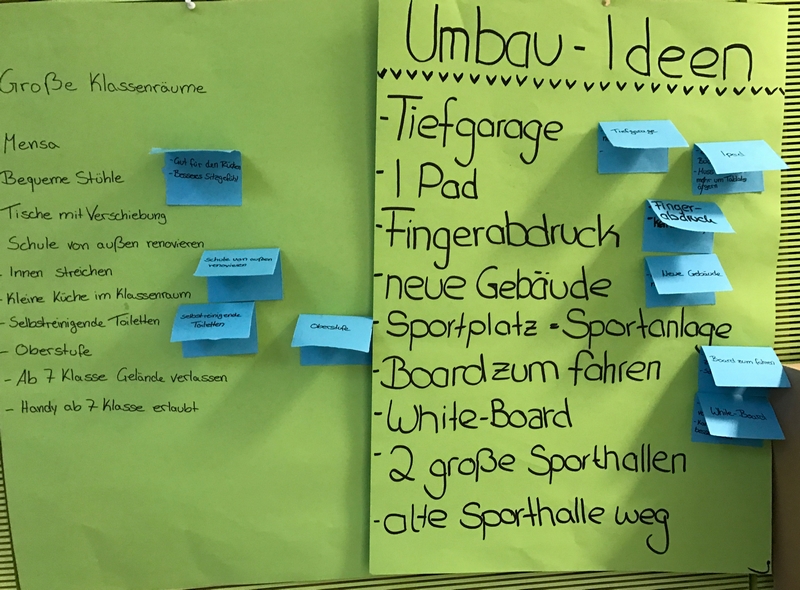 Große Klassenräume
Mensa
Bequeme Stühle
Tische mit Verschiebung
Schule von außen renovieren
- Innen streichen
- Kleine Küche im Klassenraum
- Selbstreinigende Toiletten
- Oberstufe
- Ab 7 Klasse Gelände verlassen
- Handy ab 7 Klasse erlaubt
- Gut für den Rücken
- Besseres Sitzgefühl
Schule von außen
renovieren
Selbstreinigende
Toiletten
Oberstufe
Umbau-Ideen
- Tiefgarage
- I Pad
- Fingerabdruck
- neue Gebäude
- Sportplatz = Sportanlage
- Board zum fahren
- White-Board
- 2 große Sporthallen
- alte Sporthalle weg
Tiefgarage
Ipad
mehr um Tablets
Finger-
abdruck
Neue Gebäude
Board zum fahren
White-Board